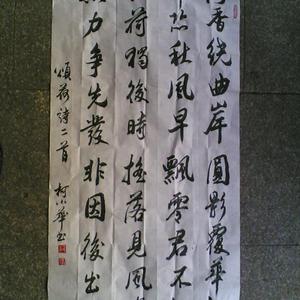 香绕曲岸圆影覆华
恐秋风早飘零君不
荷独后时摇落见风
力争先发非因后出
颂荷诗二首 柯小华书